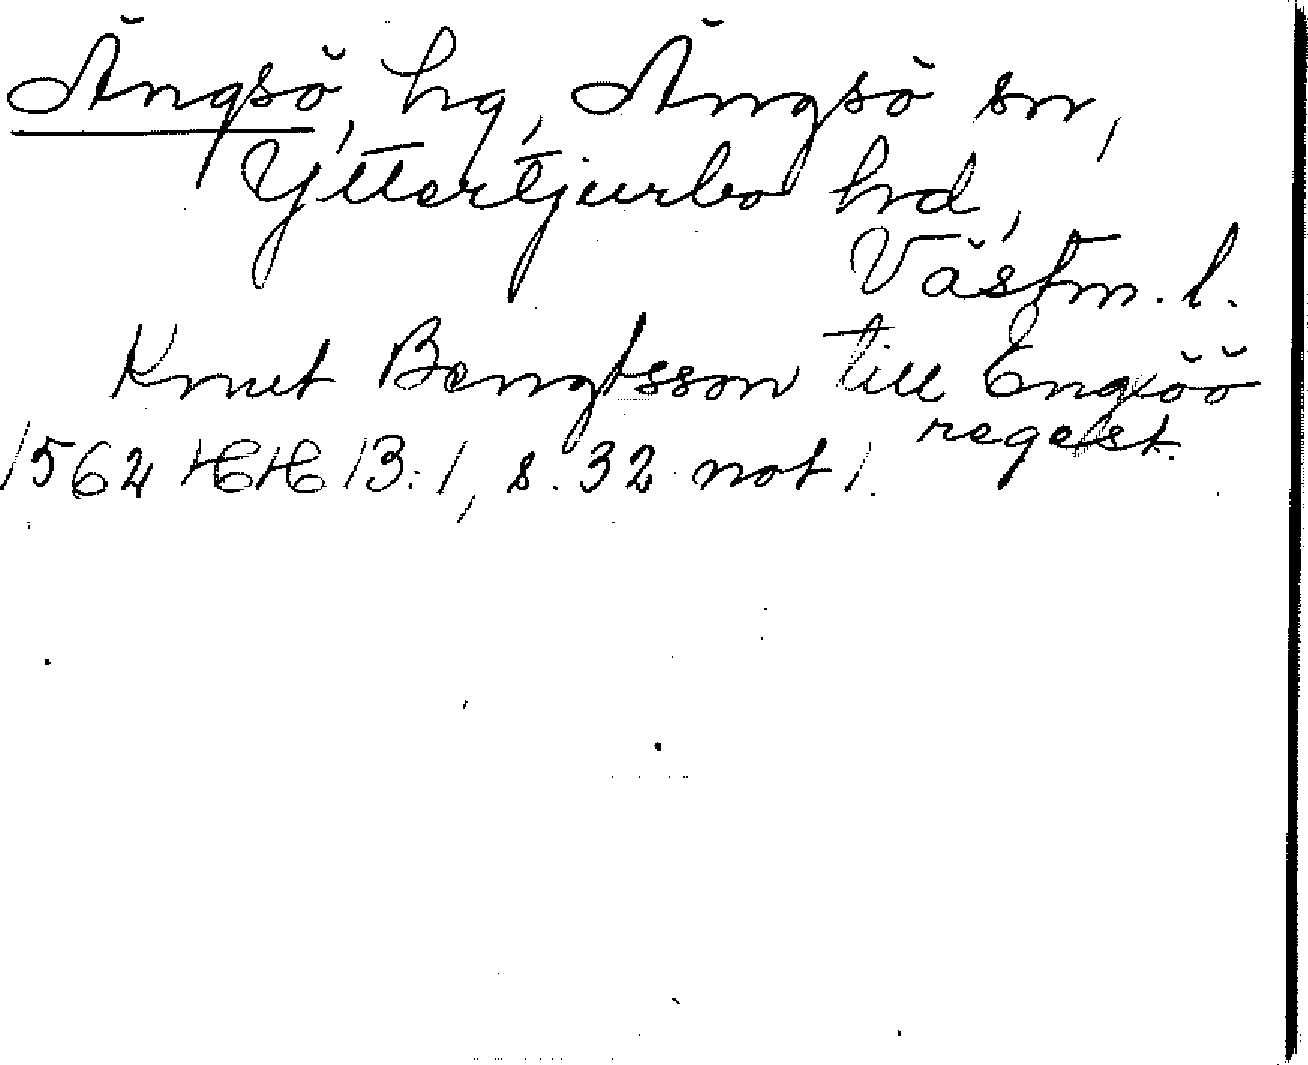 Ängsö, hg, Ängsö sn,
Yttertjurbo hd,
Västm. l.
Knut Bengtsson till Engxöö
regest.
1564 HH 13:1, s. 32 not 1.